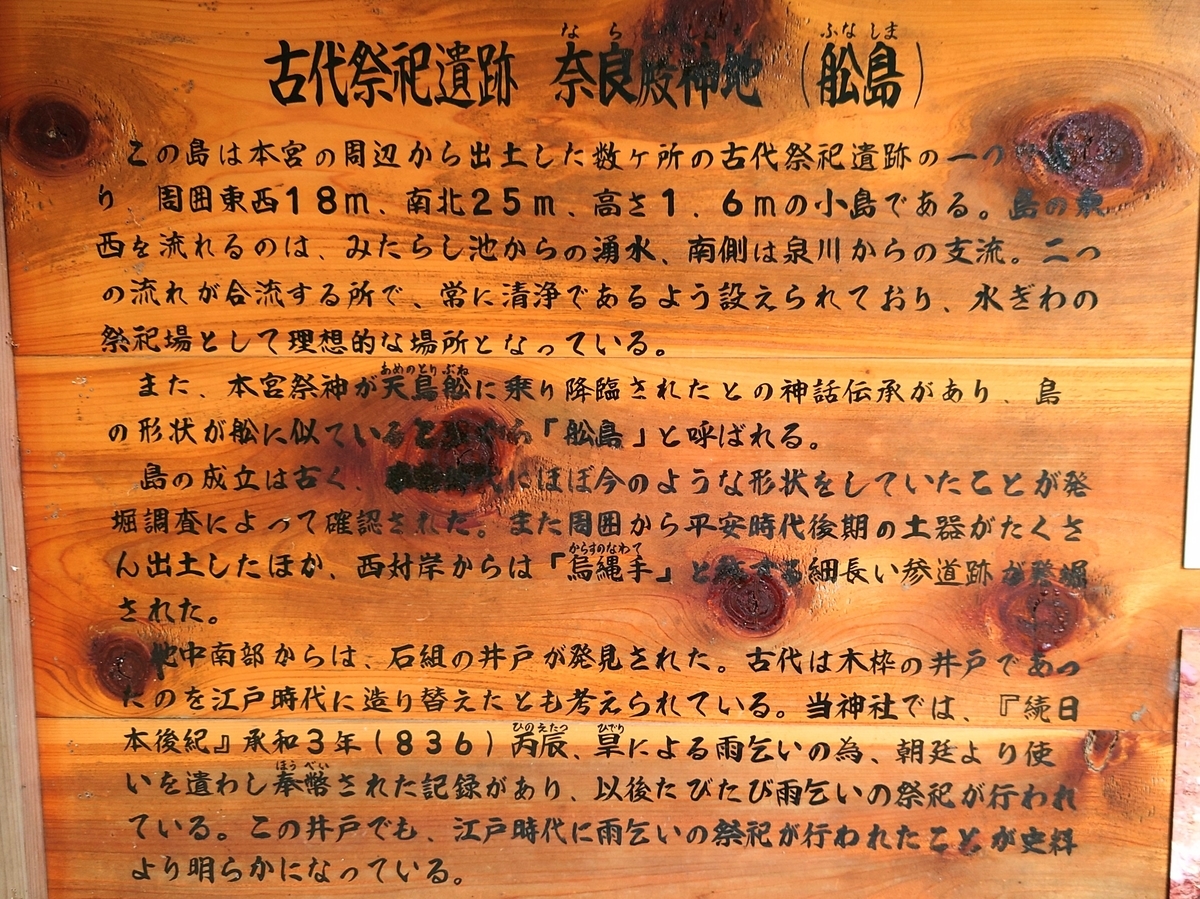 なら ふなしま
古代祭祀遺跡 奈良殿神地（舩島）
この島は本宮の周辺から出土した数ヶ所の古代祭祀遺跡の一つ
り 周囲東西18m、南北25m、高さ1．6mの小島である。島の東
西を流れるのは、みたらし池からの湧水、南側は泉川からの支流。二つ
の流れが合流する所で、常に清浄であるよう設えられており、水ぎわの
祭祀場として理想的な場所となっている。
あめのとりぶね
また、本宮祭神が天鳥舩に乗り降臨されたとの神話伝承があり、島
の形状が舩に似ていることから「舩島」と呼ばれる。
島の成立は古く、にほぼ今のような形状をしていたことが発
堀調査によって確認された。また周囲から平安時代後期の土器がたくさ
からすのなわて
ん出土したほか、西対岸からは「烏縄手」と称する細長い参道跡が発堀
された。
池中南部からは、石組の井戸が発見された。古代は木枠の井戸であっ
たのを江戸時代に造り替えたとも考えられている。当神社では、『続日
ひのえたつ ひでり
本後紀』承和3年（836）丙辰、旱による雨乞いの為、朝廷より使
ほうべい
いを遣わし奉幣された記録があり、以後たびたび雨乞いの祭祀が行われ
ている。この井戸でも、江戸時代に雨乞いの祭祀が行われたことが史料
より明らかになっている。